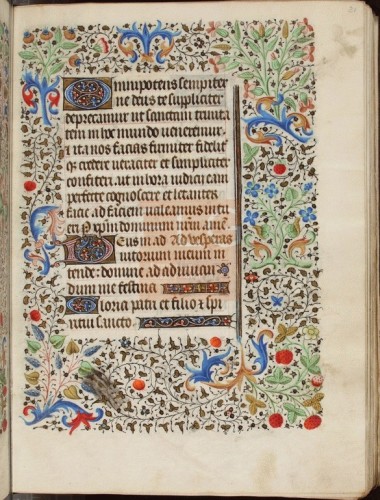 Omnipotens sempiter
ne deus te suppliciter
deprecamur ut sanctam trinita
tem in hoc mundo veneremur
et ita nos facias firmiter fideliter
credere veraciter et simpliciter
confiteri ut in hora
perfecte cognoscere et letanter
facie ad faciem valeamus
dominum nrm amē
Deus in ad Ad vesperas
iutorium meum in
tende domine ad adiuuan
dum me festina
Gloria patri et filio et spi
ritui sancto